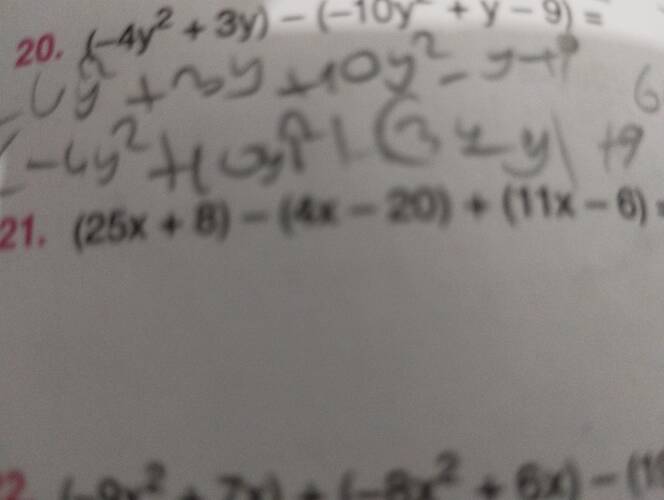 20. (-4y² + 3y) - (-10y² + y - 9) =
-4y² + 3y + 10y² - y + 9
6
(-4y² + 10y²) + (3y - y) + 9
21. (25x + 8) - (4x - 20) + (11x - 6) =
(-9x² + 7x) + (-8x² + 6x) - (1